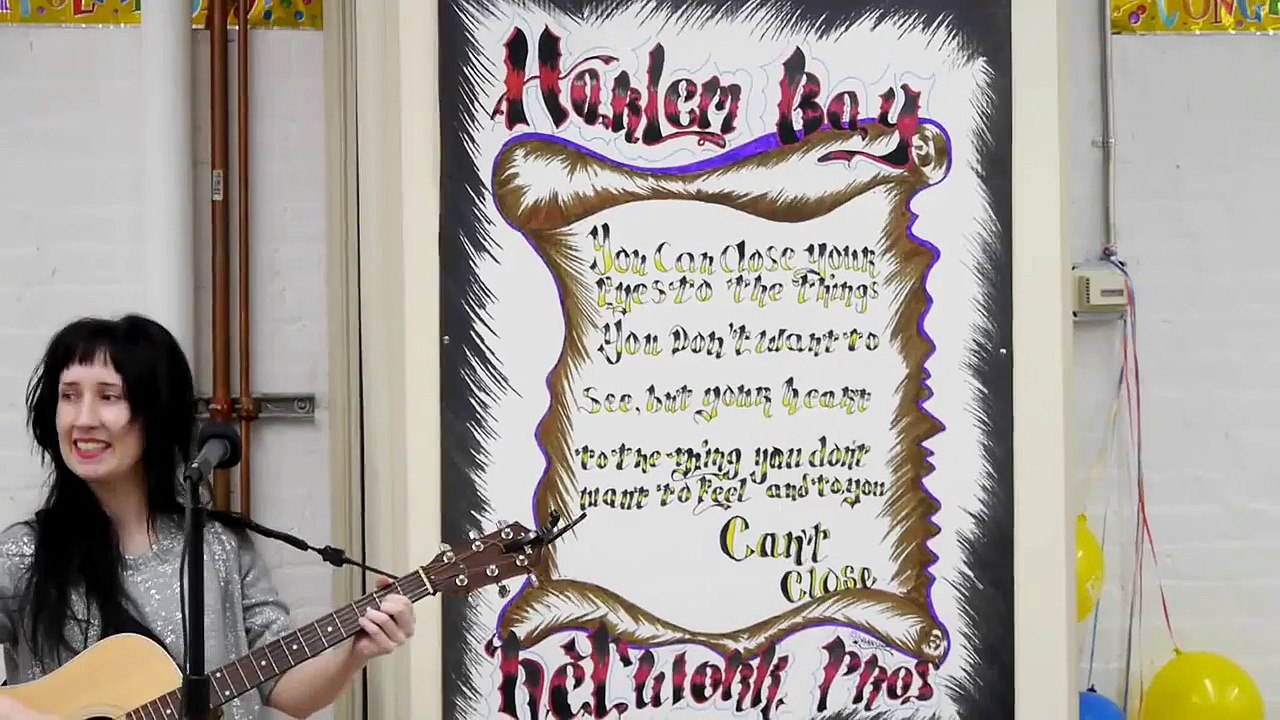 CONG
Harlem Bay
You Can Close your
Eyes to the Things
You Don't want to
See, but your heart
to the thing you don't
want to feel and to you
Can't
Close
Network Pros